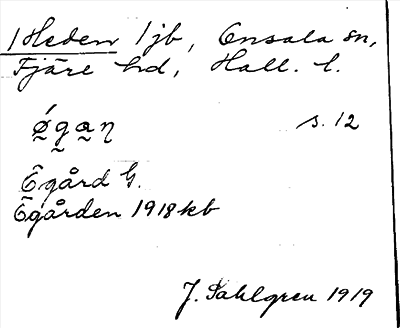 1 Heden 1 jb, Onsala sn,
Fjäre hd, Hall. l.
ǿgaɳ s. 12
Ögård G.
Ögården 1918 kb
J. Sahlgren 1919